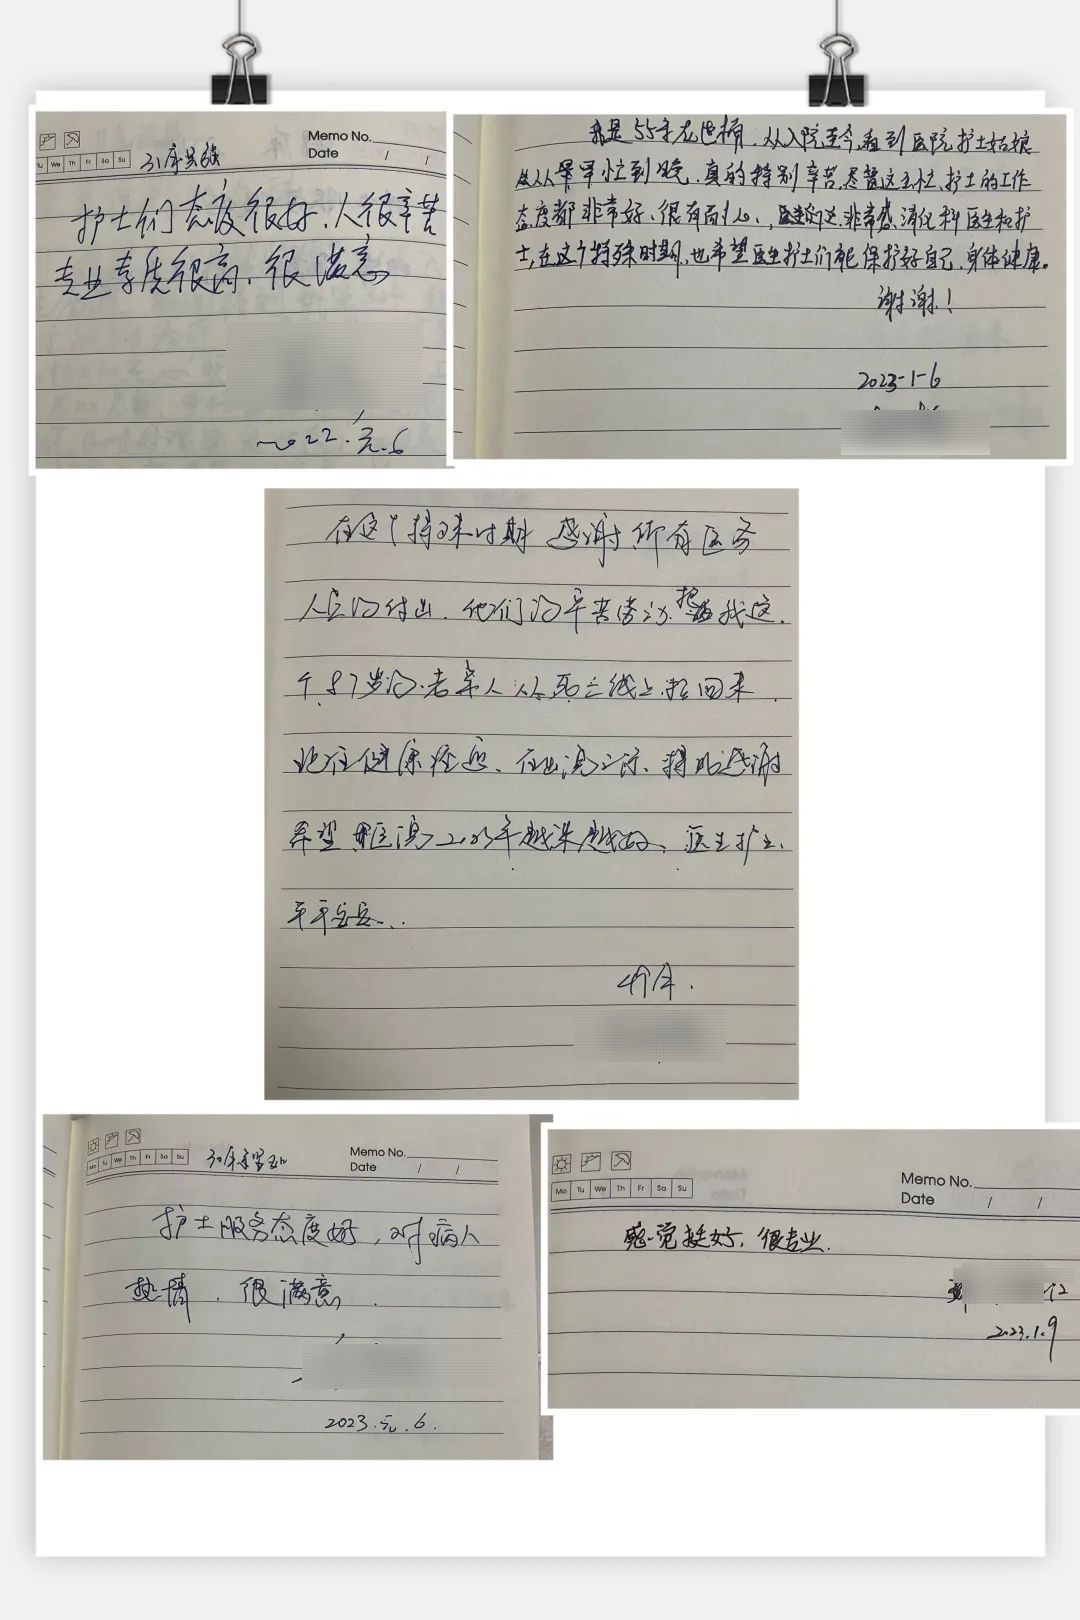 Memo No.
Date / /
Tu We Th Fr Sa Su
31床
护士们态度很好,人很辛苦
专业素质很高,很满意
2022.元.6
我是55床龙艳楠,从入院至今,看到医院护士姑娘
从早忙到晚,真的特别辛苦,尽管这么忙,护士的工作
态度都非常好、很有耐心,非常感消化科医生和护
士,在这个特殊时期,也希望医生护士们能保护好自己,身体健康。
谢谢!
2023-1-6
在这个特殊时期 感谢所有医务
人员的付出,他们的辛苦劳动,把我这
个87岁的老亲人从死亡线上拉回来
健康痊愈、在出院之际、特此感谢
希望医院2023年越来越好、医生护士、
平平安安..
Memo No.
Mo Tu We Th Fr Sa Su
Date / /
30床
护士服务态度好,对病人
热情,很满意.
2023.元.6.
Memo No.
Mo Tu We Th Fr Sa Su
Date / /
感觉挺好,很专业.
2023.1.9